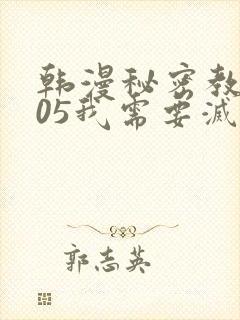 韩漫秘密教
05我需要滅
郭志英